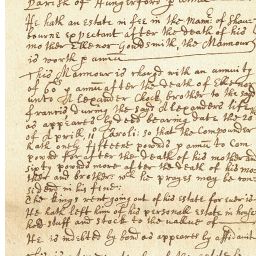 Parish of Hungerford
He hath an estate in fee in the Mannor of Shaw
bourne expectant after the death of his
mother Ellenor Gouldsmith, the Mannour
is worth p annu
This Mannour is charg'd with an annuity
of 60 p annu after the death of Ellenor
unto Alexander Chock brother to the said
francis during the said Alexanders life
as appeares by deed bearing date the 20
of Aprill Caroli: so that the Compounder
hath only fifteene pounds p annu to Com
pound for after the death of his mother and
sixty pounds more after the death of his mo
ther and brother wch he prayes may be con
sidered in his fine:
The kings rents going out of his estate for ever is
He hath left him of his personall estate in house
hold stuff and stock to the value of
He is indebted by bond as appeares by affidavit